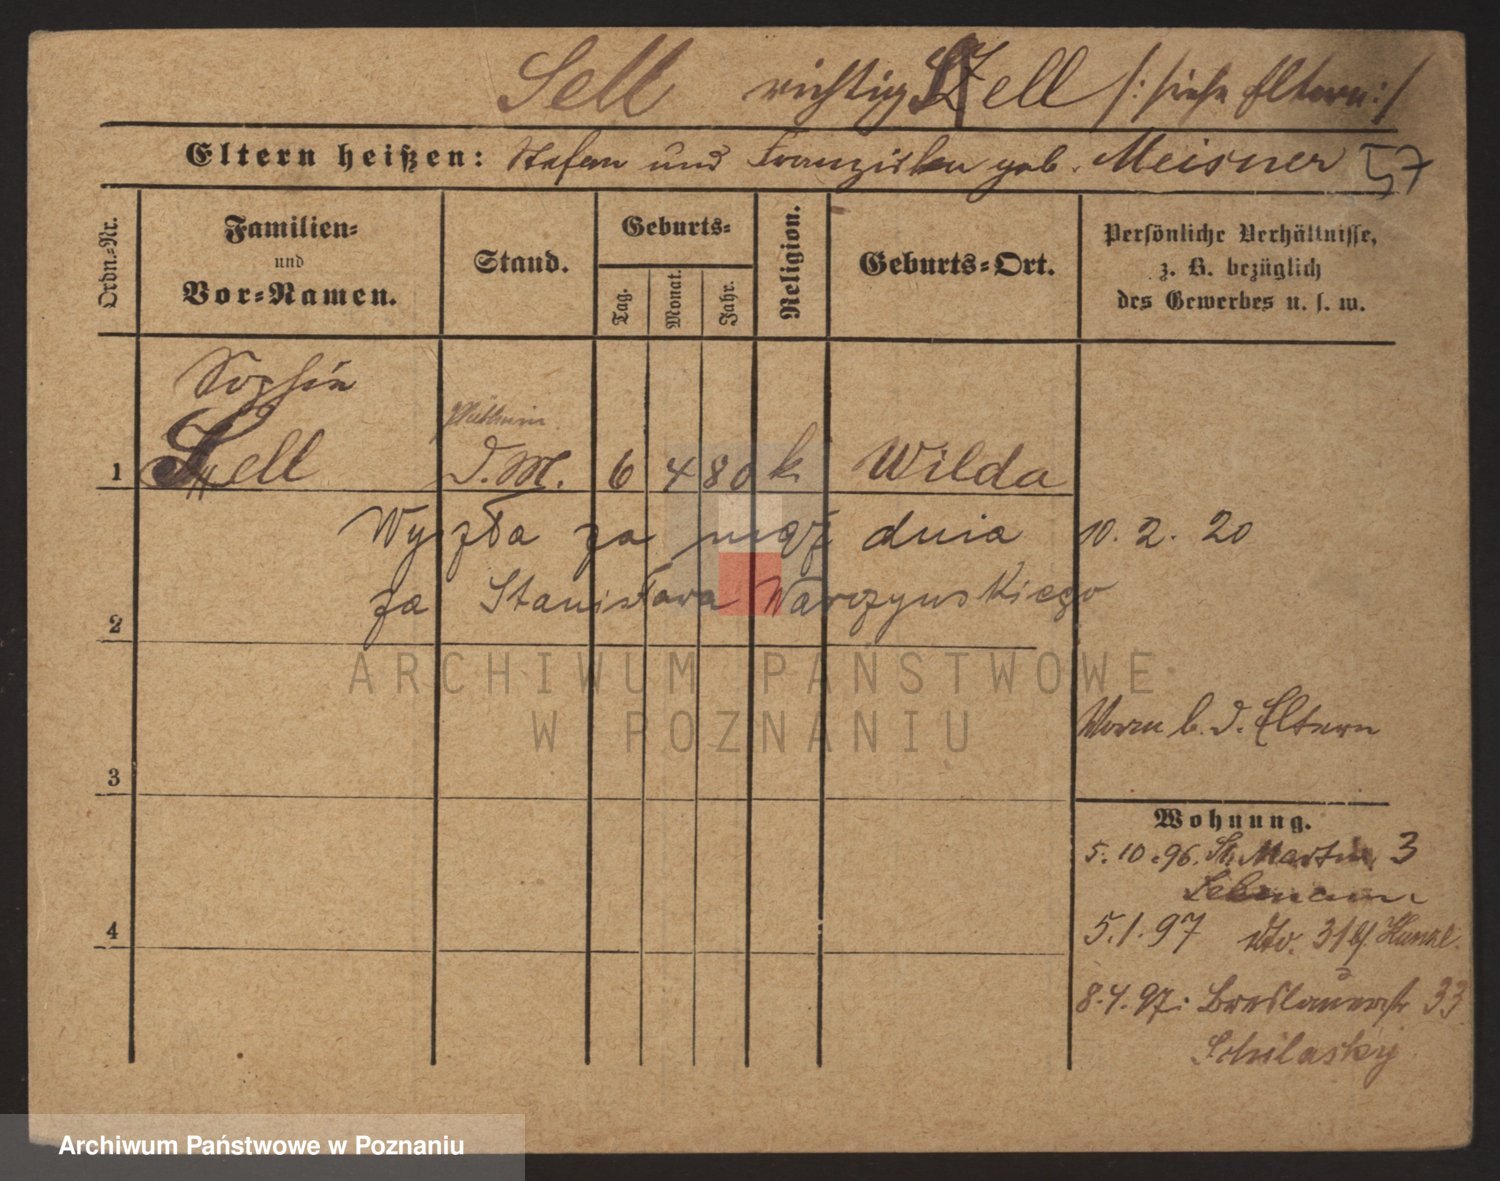 Sell richtig Zell /: siehe Eltern :/
Eltern heißen: Stefan und Franziska geb. Meisner 57
Ordn.-Nr.
Familien-
und
Vor-Namen.
Stand.
Geburts-
Tag.
Monat.
Jahr.
Religion.
Geburts-Ort.
Persönliche Verhältnisse,
z. B. bezüglich
des Gewerbes u. s. w.
Sophie
1 Sell D.M. 6 4 80 k. Wilda
Wyszła za mąż dnia 10. 2. 20
za Stanisława Warczynskiego
2
ARCHIWUM PAŃSTWOWE
W POZNANIU
Worm b. d. Eltern
3
Wohnung.
5.10.96. St. Martin 3
4
5.1.97 dto. 31
8.4.97: Breslauerstr 33
Schilasky
Archiwum Państwowe w Poznaniu